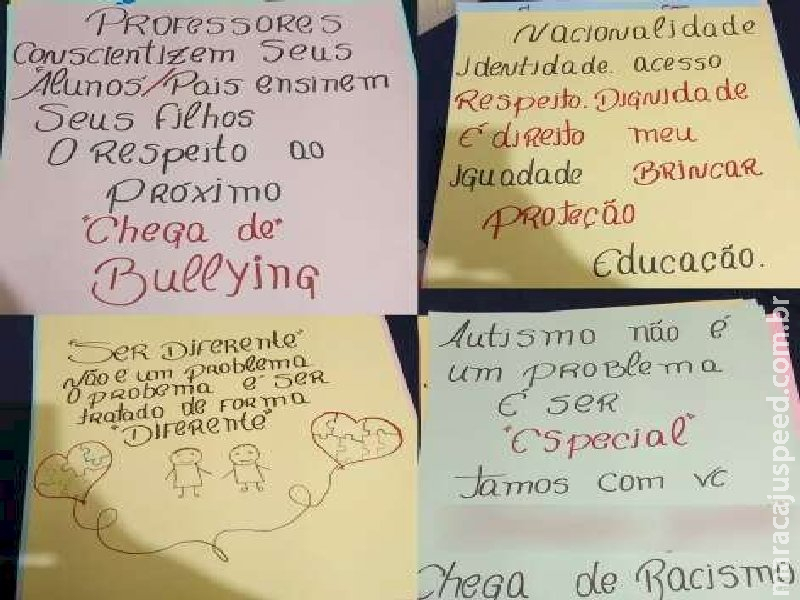 PROFESSORES
CONSCIENTIZEM SEUS
Alunos/Pais ensinem
Seus Filhos
O RESPEITO ao
PRÓXIMO
"Chega de"
Bullying
Nacionalidade
Identidade. acesso
Respeito. DIGNIDADE
É direito meu
IGUADADE BRINCAR
PROTEÇÃO
Educação.
"SER DIFERENTE"
Não é um problema
O PROBEMA É SER
tratado de FORMA
"DIFERENTE"
Autismo não é
um PROBLEMA
É SER
"Especial"
Tamos com vc
Chega de Racismo
maracajuspeed.com.br